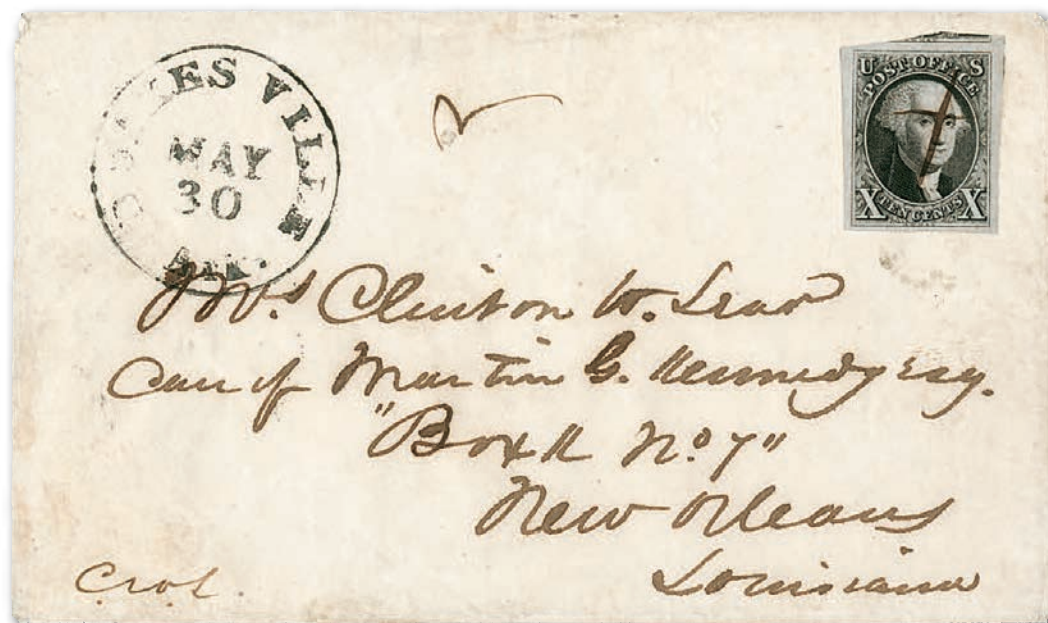 MAY
30
U S
POST OFFICE
X TEN CENTS X
Mrs Clinton W. Lear
Care of Martin G. Kennedy Esq.
"Box K No 7"
New Orleans
Louisiana